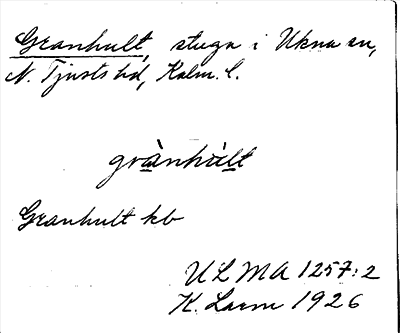 Granhult, stuga i Ukna sn,
N. Tjusts hd, Kalm. l.
grànhùlt
Granhult kb
ULMA 1257:2
K. Larm 1926